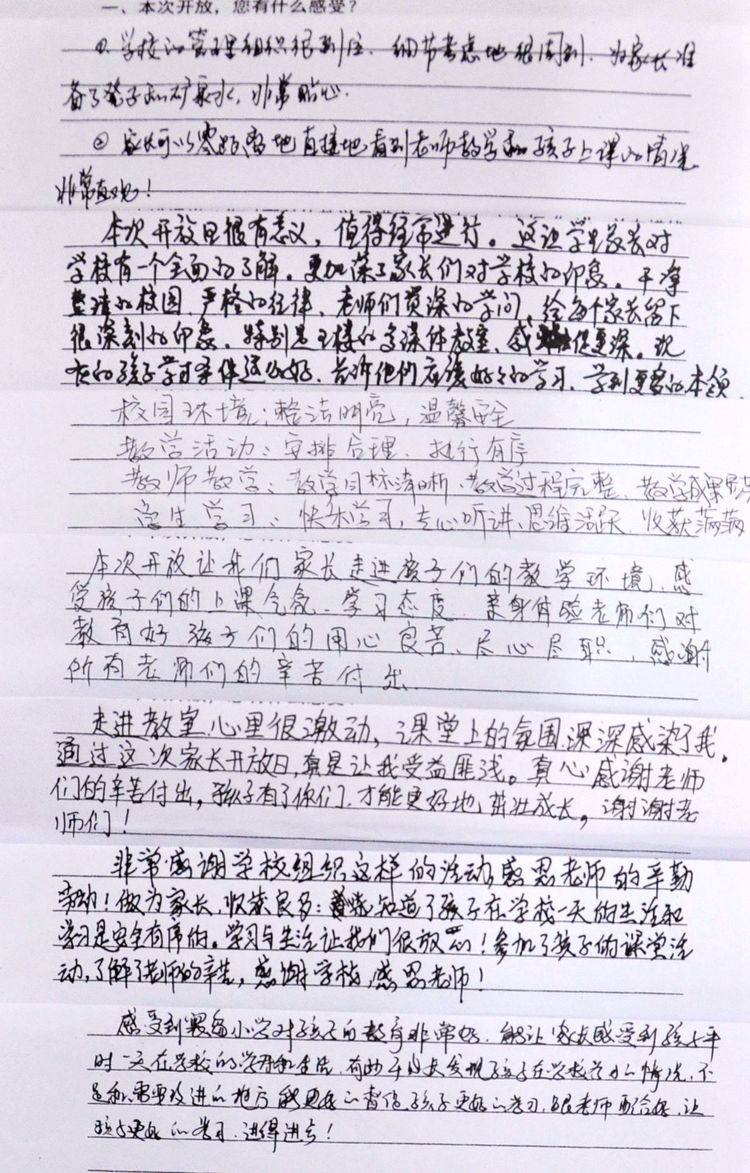 一、本次开放，您有什么感受？
①学校的管理组织很到位，细节考虑地很周到，为家长准
备了凳子和矿泉水，非常贴心。
②家长可以零距离地直接地看到老师教学和孩子上课的情况
非常直观！
本次开放日很有意义，值得经常进行。这让学生家长对
学校有一个全面的了解。更加深了家长们对学校的印象。干净
整洁的校园、严格的纪律、老师们资深的学问，给每个家长留下
很深刻的印象。特别是主楼的多媒体教室，感
在的孩子学习条件这么好，告诉他们应该好好的学习，学到更多的本领
校园环境：整洁明亮，温馨安全
教学活动：安排合理、执行有序
教师教学：教学目标清晰、教学过程完整、教学成果
学生学习：快乐学习，专心听讲、思维活跃、收获满满
本次开放让我们家长走进孩子们的教学环境，感
受孩子们的上课气氛、学习态度，亲身体验老师们对
教育好孩子们的用心良苦、尽心尽职，感谢
所有老师们的辛苦付出
走进教室心里很激动，课堂上的氛围深深感染了我。
通过这次家长开放日，真是让我受益匪浅。真心感谢老师
们的辛苦付出，孩子有了你们，才能更好地茁壮成长，谢谢老
师们！
非常感谢学校组织这样的活动，感恩老师的辛勤
劳动！做为家长，收获良多：知道了孩子在学校一天的生活和
学习是安全有序的。学习与生活让我们很放心！参加了孩子的课堂活
动，了解了老师的辛苦，感谢学校，感恩老师！
感受到小学对孩子的教育非常好，能让家长感受到孩子平
时一天在学校的学习和生活，有助于家长发现孩子在学校学习的情况，不
足和需要改进的地方能更好的督促孩子更好的学习，跟老师配合好，让
孩子更好的学习，进得进步！